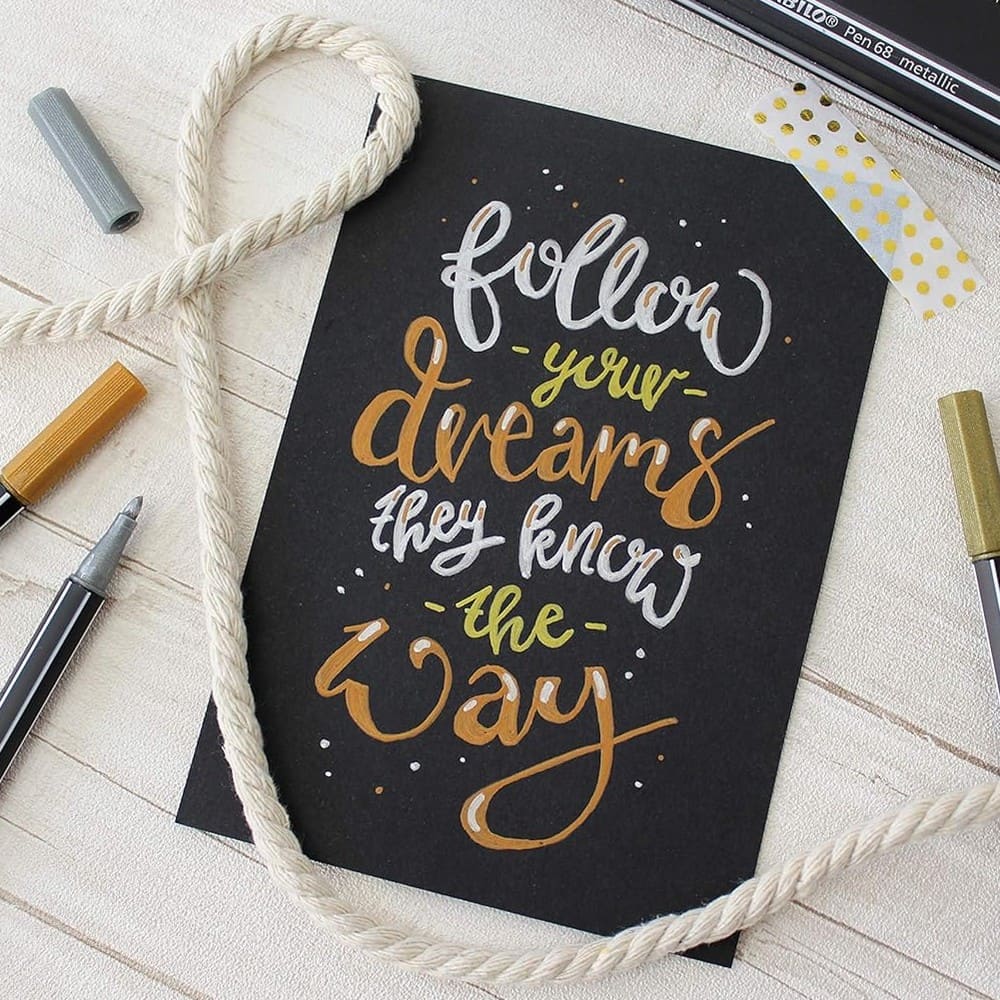 STABILO® Pen 68 metallic
follow
- your -
dreams
they know
- the -
way